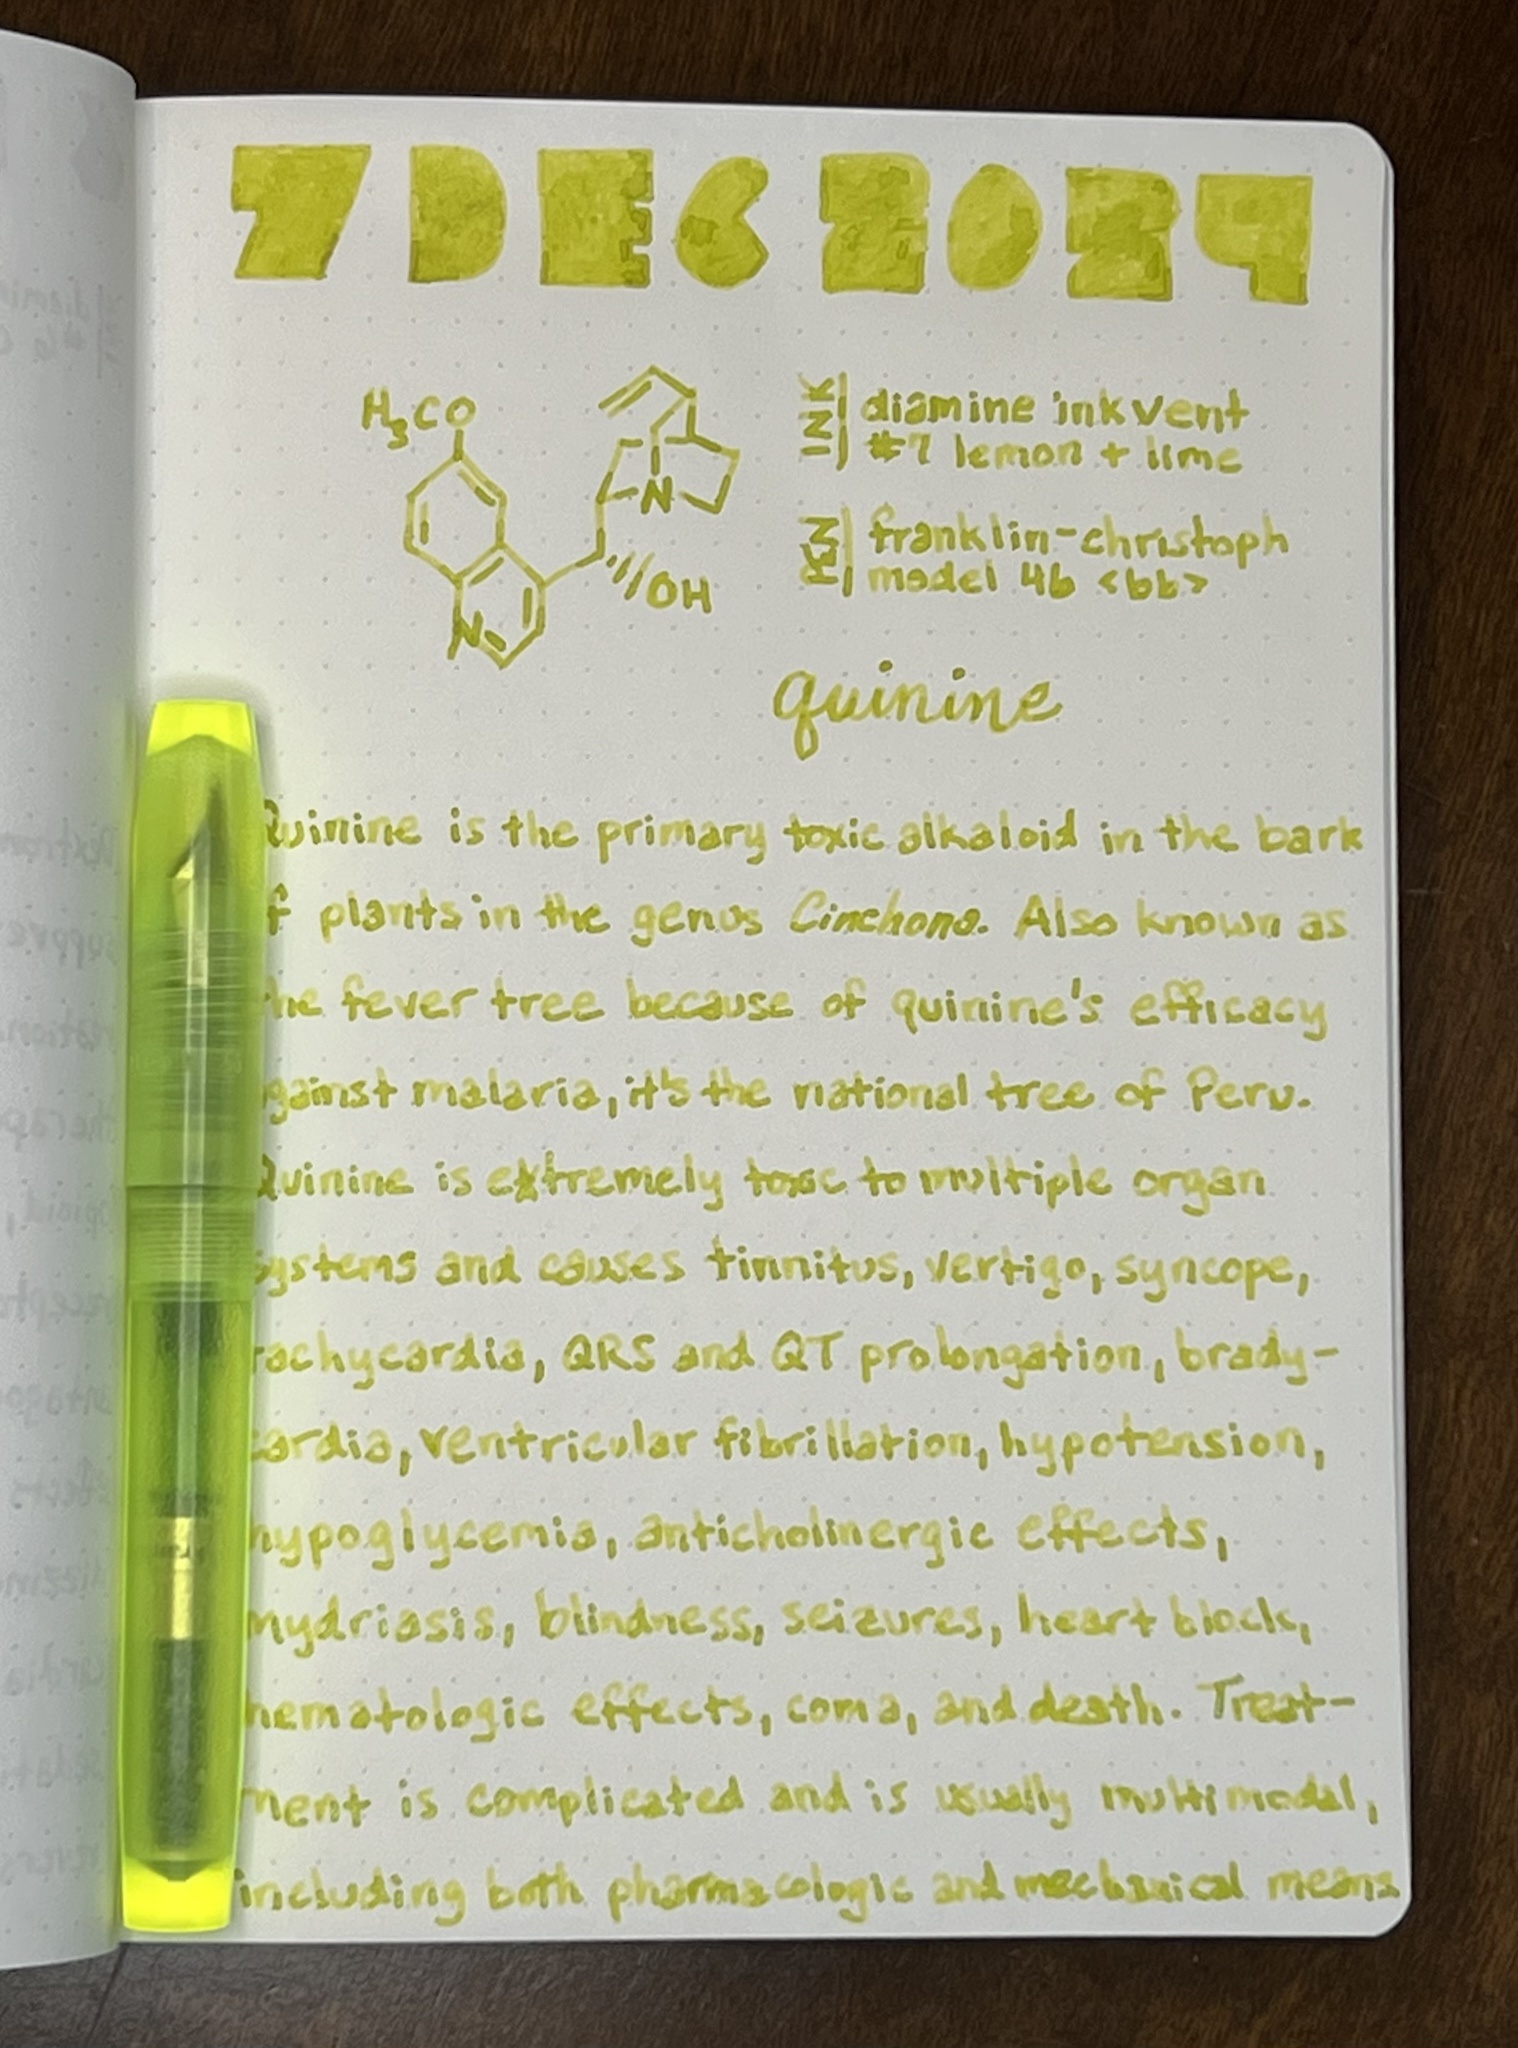 7 DEC 2024
H₃CO
N
N
OH
INK
diamine inkvent
#7 lemon + lime
PEN
franklin-christoph
model 46 <bb>
quinine
Quinine is the primary toxic alkaloid in the bark
f plants in the genus Cinchona. Also known as
he fever tree because of quinine's efficacy
gainst malaria, it's the national tree of Peru.
Quinine is extremely toxic to multiple organ
systems and causes tinnitus, vertigo, syncope,
tachycardia, QRS and QT prolongation, brady-
cardia, ventricular fibrillation, hypotension,
hypoglycemia, anticholinergic effects,
mydriasis, blindness, seizures, heart block,
hematologic effects, coma, and death. Treat-
ment is complicated and is usually multimodal,
including both pharmacologic and mechanical means